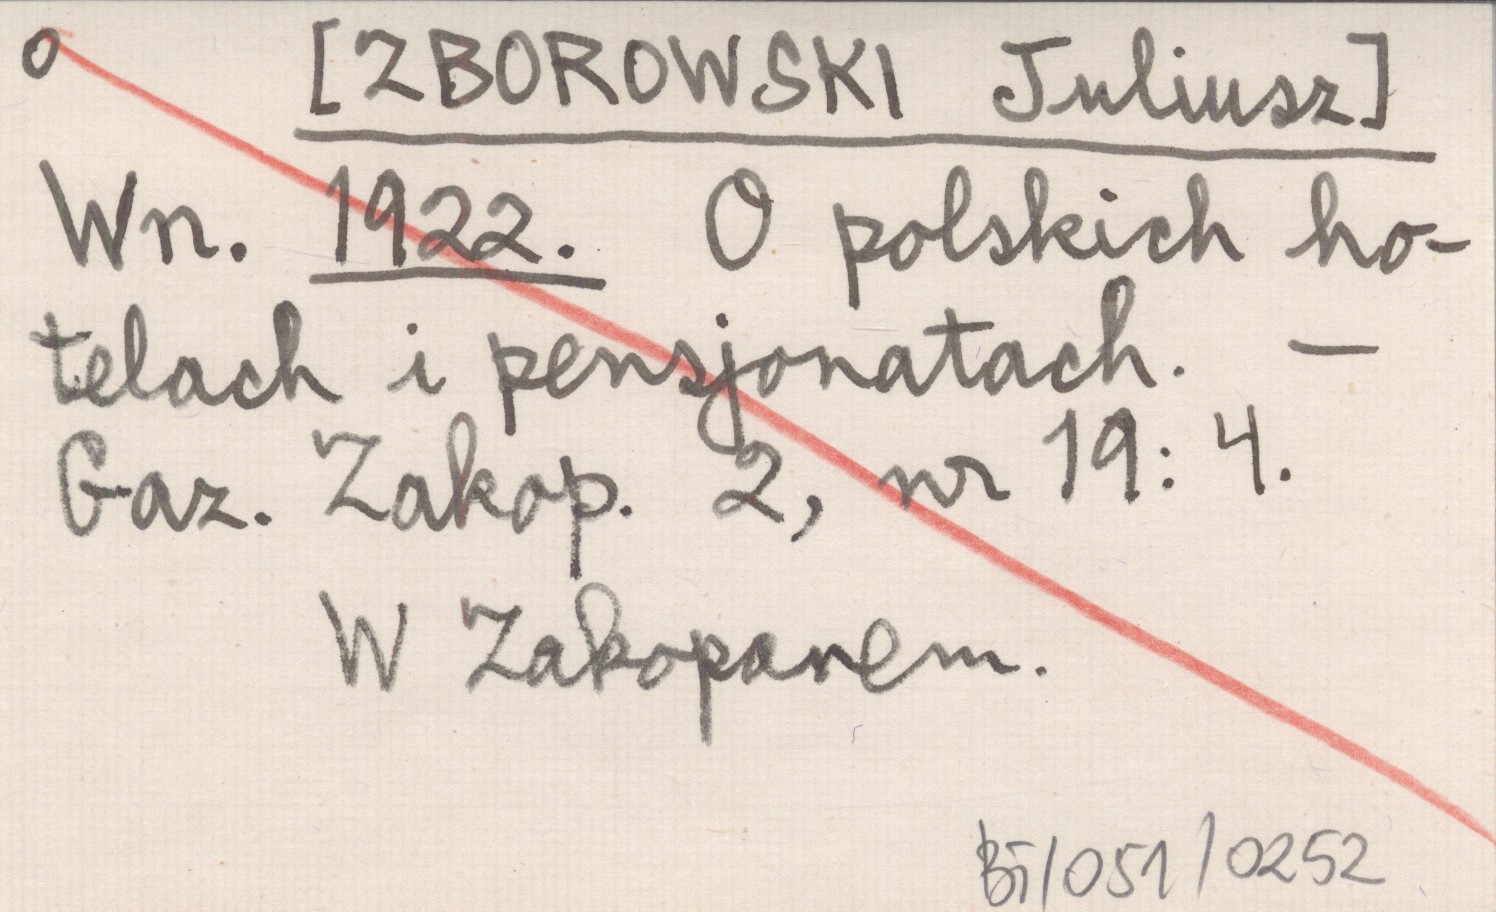 o [ZBOROWSKI Juliusz]
Wn. 1922. O polskich ho-
telach i pensjonatach. —
Gaz. Zakop. 2, nr 19: 4.
W Zakopanem.
BT/051/0252